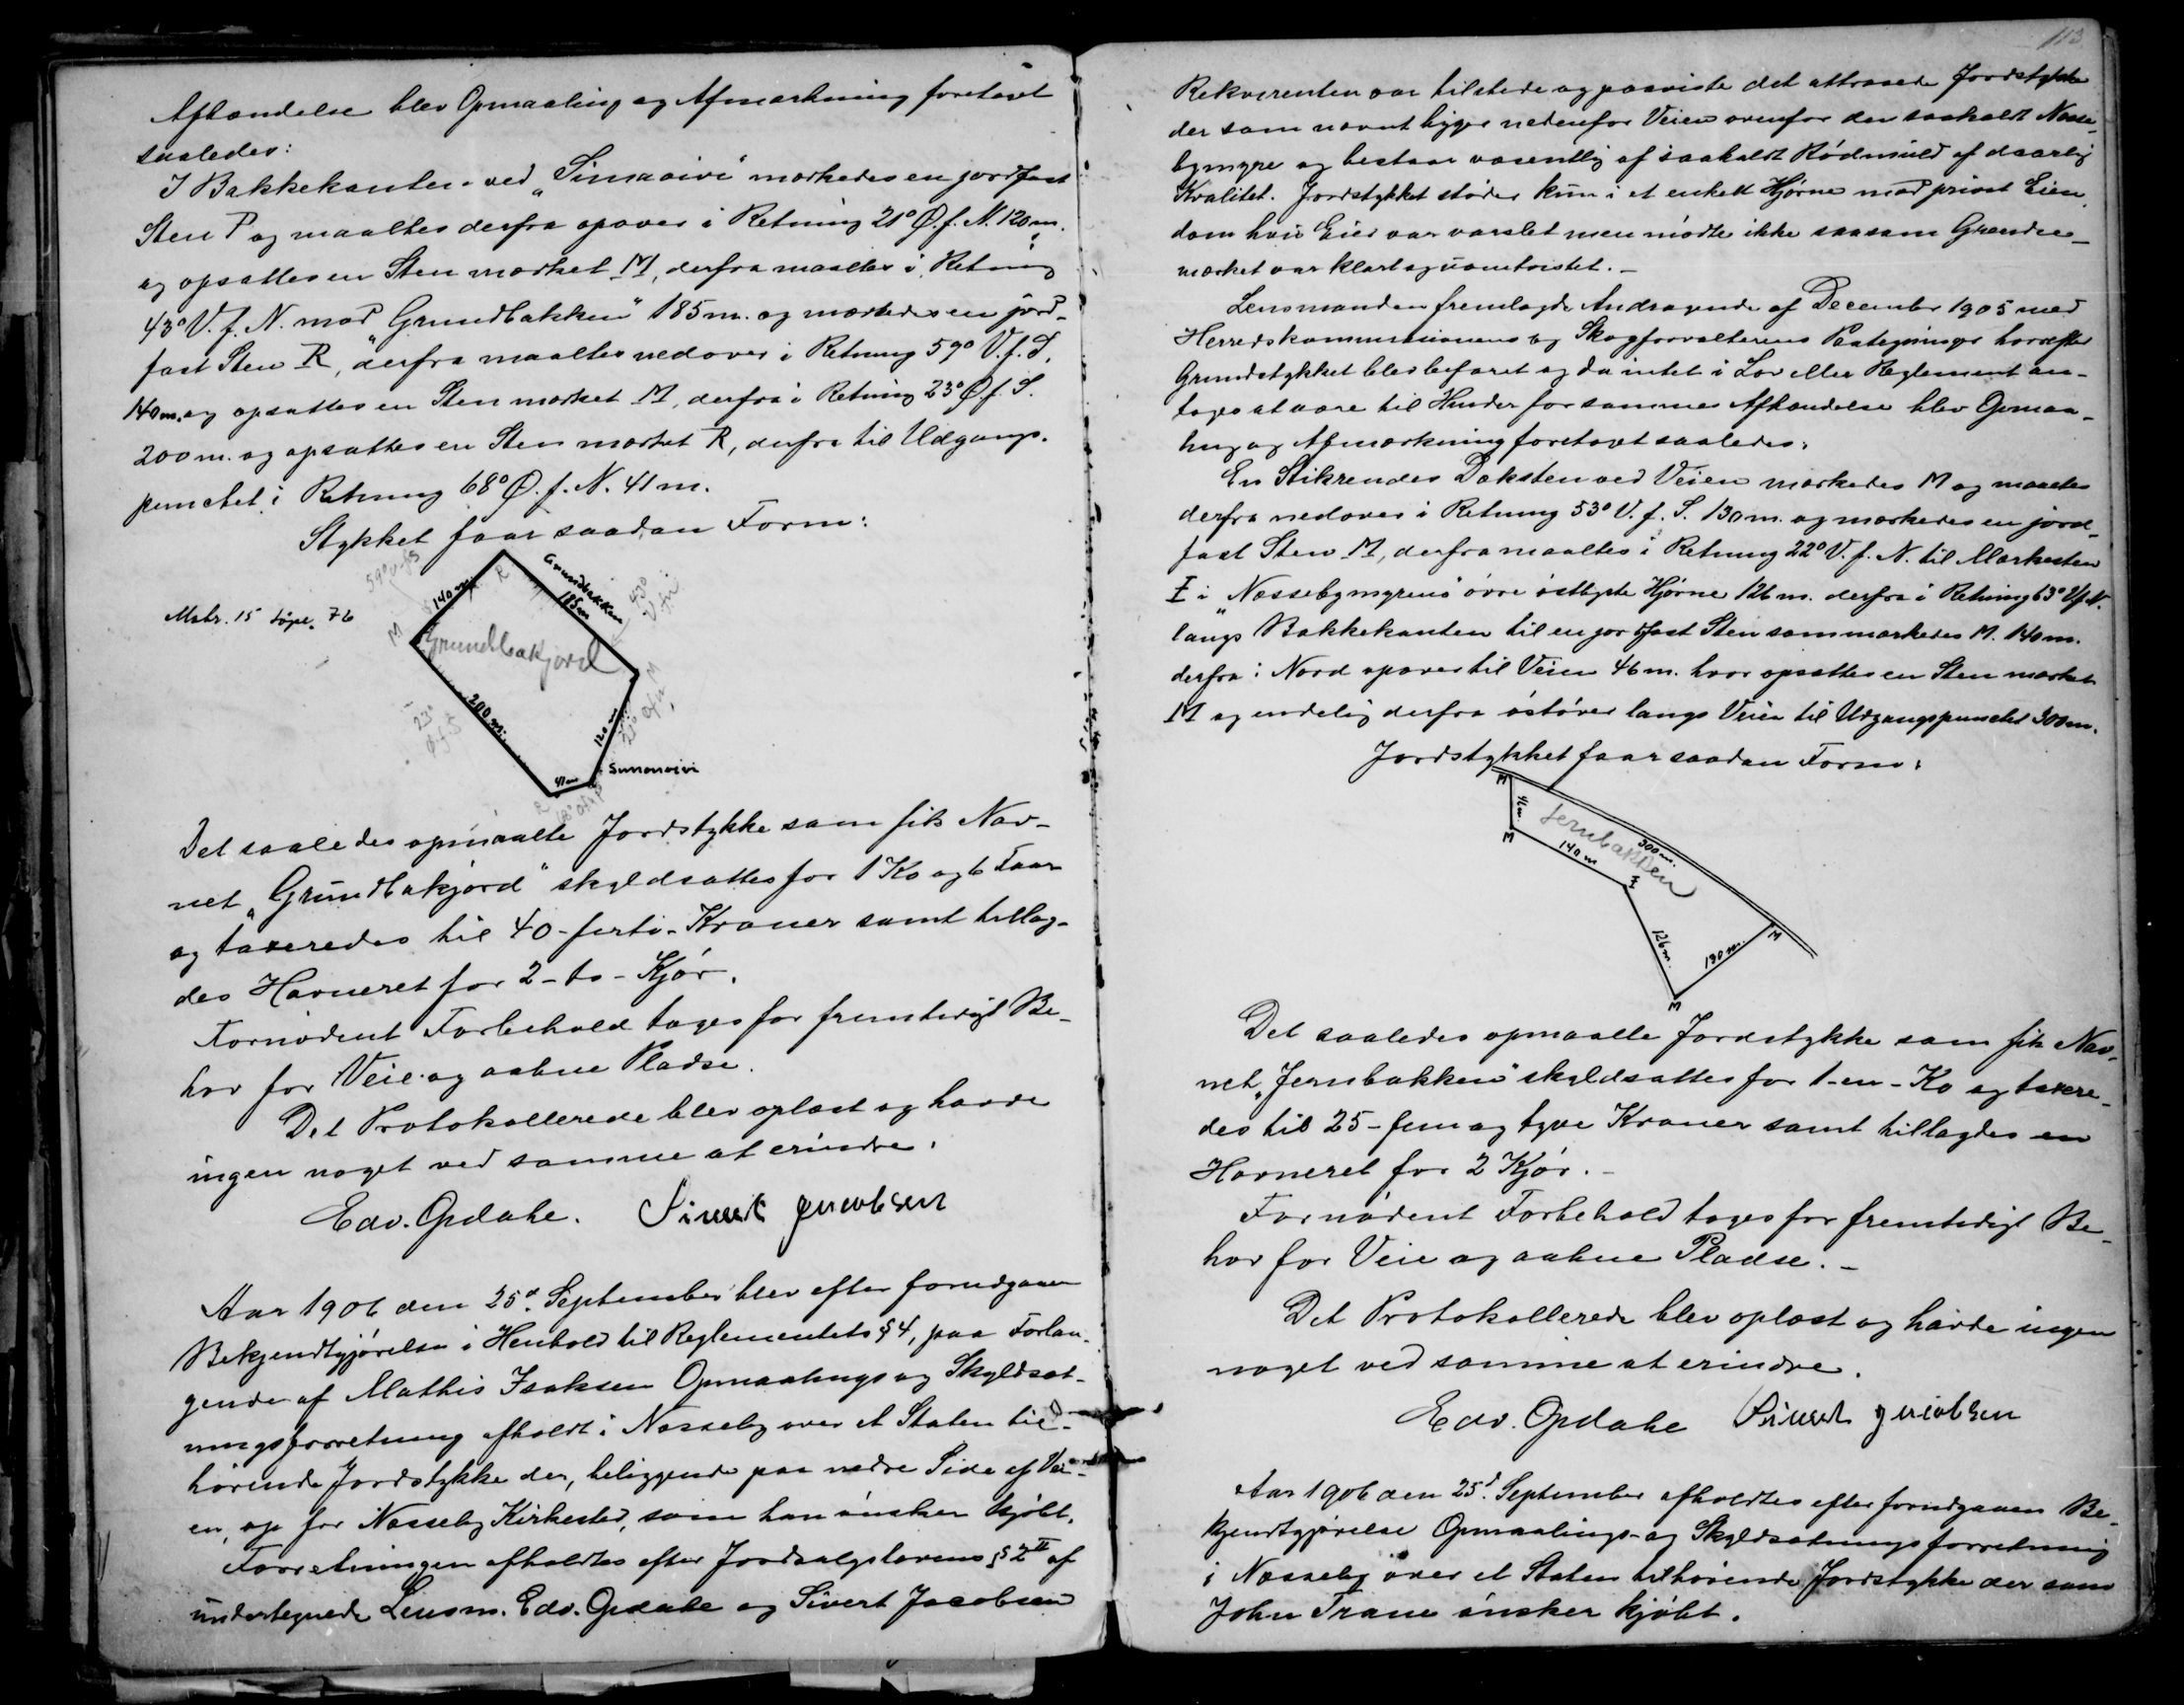 Afhændelse blev Opmaaling og Afmærkning foretaget
saaledes:
I Bakkekanten ved „Simaoivi" mærkedes en jordfast
Sten P og maaltes derfra opover i Retning 21° Ø. f. N. 120 m.
og opsattes en Sten mærket M, derfra maaltes i Retning
43° V. f. N. mod „Grundbakken" 185 m. og mærkedes en jord-
fast Sten R, derfra maaltes nedover i Retning 59° V. f. S.
140 m. og opsattes en Sten mærket M, derfra i Retning 23° Ø. f. S.
200 m. og opsattes en Sten mærket R, derfra til Udgangs-
punctet i Retning 68° Ø. f. N. 41 m.
Stykket faar saadan Form:
59° V f S
R
Grundbakken
185 m
43° V f N
140 m.
Matr. 15 løpe. 76
M
Grundbakjord
M
200 m.
23° Ø f S
120 m
21° Ø f N
Simonoivi
41 m
R
68° Ø f N
P
Det saaledes opmaalte Jordstykke som fik Nav-
net „Grundbakjord" skyldsattes for 1 Ko og 6 Faar
og taxeredes til 40 - førti - Kroner samt tillag-
des Havneret for 2 - to - Kjør.
Fornødent Forbehold toges for fremtidigt Be-
hov for Veie og aabne Pladse.
Det Protokollerede blev oplæst og havde
ingen noget ved samme at erindre.
Edv. Opdahl. Sivert Jacobsen
Aar 1906 den 25d. September blev efter forudgaaen
Bekjendtgjørelse i Henhold til Reglementets § 4, paa Forlan-
gende af Mathis Isaksen Opmaalings og Skyldsæt-
ningsforretning afholdt i Nesseby over et Staten til-
hørende Jordstykke der, beliggende paa nedre Side af Vei-
en, op for Nesseby Kirkested, som han ønsker kjøbt.
Forretningen afholdtes efter Jordsalgslovens § 2 II af
undertegnede Lensm. Edv. Opdahl og Sivert Jacobsen
113
Rekvirenten var tilstede og paaviste det attraaede Jordstykke
der som nævnt ligger nedenfor Veien ovenfor den saakaldt Nesse-
bymyre og bestaar væsentlig af saakaldt Rødmuld af daarlig
Kvalitet. Jordstykket støder kun i et enkelt Hjørne mod privat Eien-
dom hvis Eier var varslet men mødte ikke saasom Grændse-
mærket var klart og uomtvistet. -
Lensmanden fremlagde Andragende af December 1905 med
Herredskommissionens og Skogforvalterens Paategninger hvorefter
Grundstykket blev befaret og da intet i Lov eller Reglement an-
toges at være til Hinder for sammes Afhændelse blev Opmaa-
ling og Afmærkning foretaget saaledes:
En Stikrendes Dæksten ved Veien mærkedes M og maaltes
derfra nedover i Retning 53° V. f. S. 130 m. og mærkedes en jord-
fast Sten M, derfra maaltes i Retning 22° V. f. N. til Mærkesten
I i „Nessebymyrens" øvre østligste Hjørne 126 m. derfra i Retning 63° V. f. N.
langs Bakkekanten til en jordfast Sten som mærkedes M. 140 m.
derfra i Nord opover til Veien 46 m. hvor opsattes en Sten mærket
M og endelig derfra østover langs Veien til Udgangspunctet 300 m.
Jordstykket faar saadan Form:
M
M
Jernbakken
300 m.
140 m
I
126 m.
130 m.
M
M
Det saaledes opmaalte Jordstykke som fik Nav-
net „Jernbakken" skyldsattes for 1 - en - Ko og taxere-
des til 25 - fem og tyve Kroner samt tillagdes en
Havneret for 2 Kjør. -
Fornødent Forbehold toges for fremtidigt Be-
hov for Veie og aabne Pladse. -
Det Protokollerede blev oplæst og havde ingen
noget ved samme at erindre.
Edv. Opdahl Sivert Jacobsen
Aar 1906 den 25d. September afholdtes efter forudgaaen Be-
kjendtgjørelse Opmaalings- og Skyldsætningsforretning
i Nesseby over et Staten tilhørende Jordstykke der som
John Trane ønsker kjøbt.